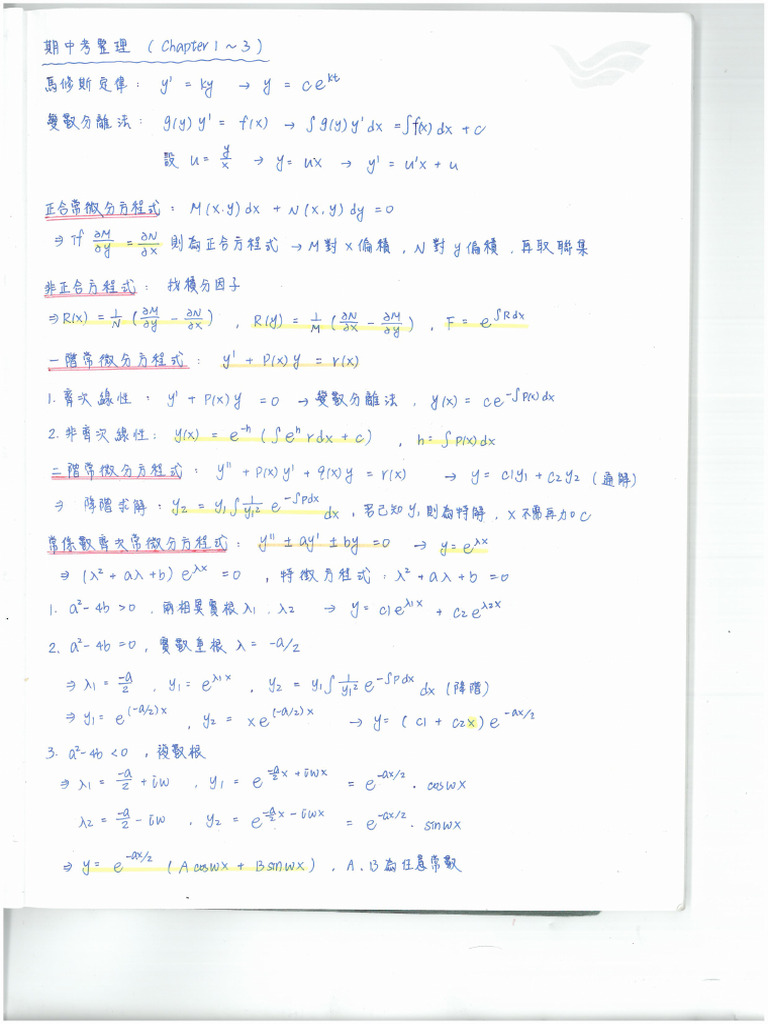 期中考整理 (Chapter 1 ~ 3)
馬修斯定律: y' = ky → y = ce^{kt}
變數分離法: g(y) y' = f(x) → ∫g(y) y' dx = ∫f(x) dx + c
設 u = y/x → y = ux → y' = u'x + u
正合常微分方程式: M(x,y)dx + N(x,y)dy = 0
⇒ If ∂M/∂y = ∂N/∂x 則為正合方程式 → M對x偏積, N對y偏積, 再取聯集
非正合方程式: 找積分因子
⇒ R(x) = 1/N (∂M/∂y - ∂N/∂x), R(y) = 1/M (∂N/∂x - ∂M/∂y), F = e^{∫Rdx}
一階常微分方程式: y' + P(x)y = r(x)
1. 齊次線性: y' + P(x)y = 0 → 變數分離法, y(x) = ce^{-∫P(x)dx}
2. 非齊次線性: y(x) = e^{-h} (∫e^{h} rdx + c), h = ∫P(x)dx
二階常微分方程式: y'' + P(x)y' + q(x)y = r(x) → y = c1y1 + c2y2 (通解)
⇒ 降階求解: y2 = y1∫ 1/y1² e^{-∫Pdx} dx, 若已知y1則為特解, x不需再加c
常係數齊次常微分方程式: y'' ± ay' ± by = 0 → y = e^{λx}
⇒ (λ² + aλ + b) e^{λx} = 0, 特徵方程式: λ² + aλ + b = 0
1. a² - 4b > 0, 兩相異實根 λ1, λ2 → y = c1e^{λ1x} + c2e^{λ2x}
2. a² - 4b = 0, 實數重根 λ = -a/2
⇒ λ1 = -a/2, y1 = e^{λ1x}, y2 = y1∫ 1/y1² e^{-∫Pdx} dx (降階)
⇒ y1 = e^{(-a/2)x}, y2 = xe^{(-a/2)x} → y = (c1 + c2x) e^{-ax/2}
3. a² - 4b < 0, 複數根
⇒ λ1 = -a/2 + iw, y1 = e^{-a/2 x + iwx} = e^{-ax/2} · coswx
λ2 = -a/2 - iw, y2 = e^{-a/2 x - iwx} = e^{-ax/2} · sinwx
⇒ y = e^{-ax/2} (A coswx + B sinwx), A, B為任意常數